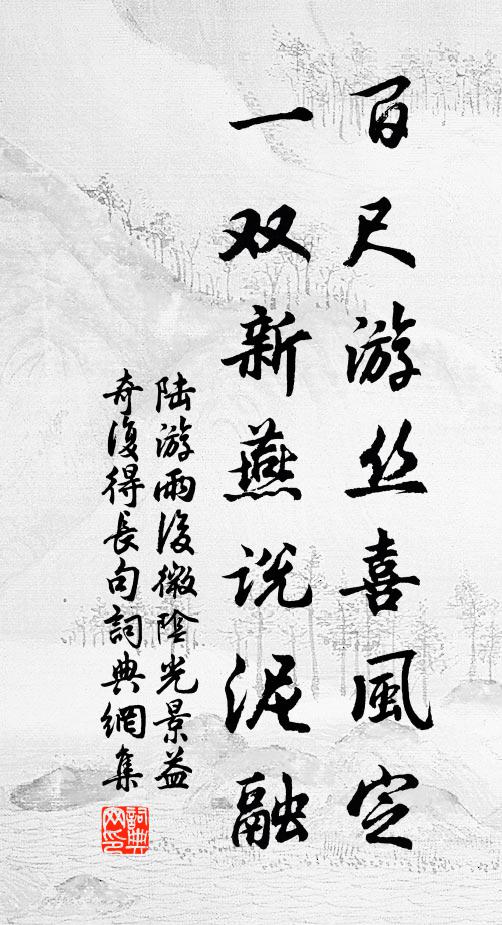 百尺游丝喜風定
一双新燕説泥融
陆游雨後微陰光景益
奇復得長句詞典網集
詞典网印